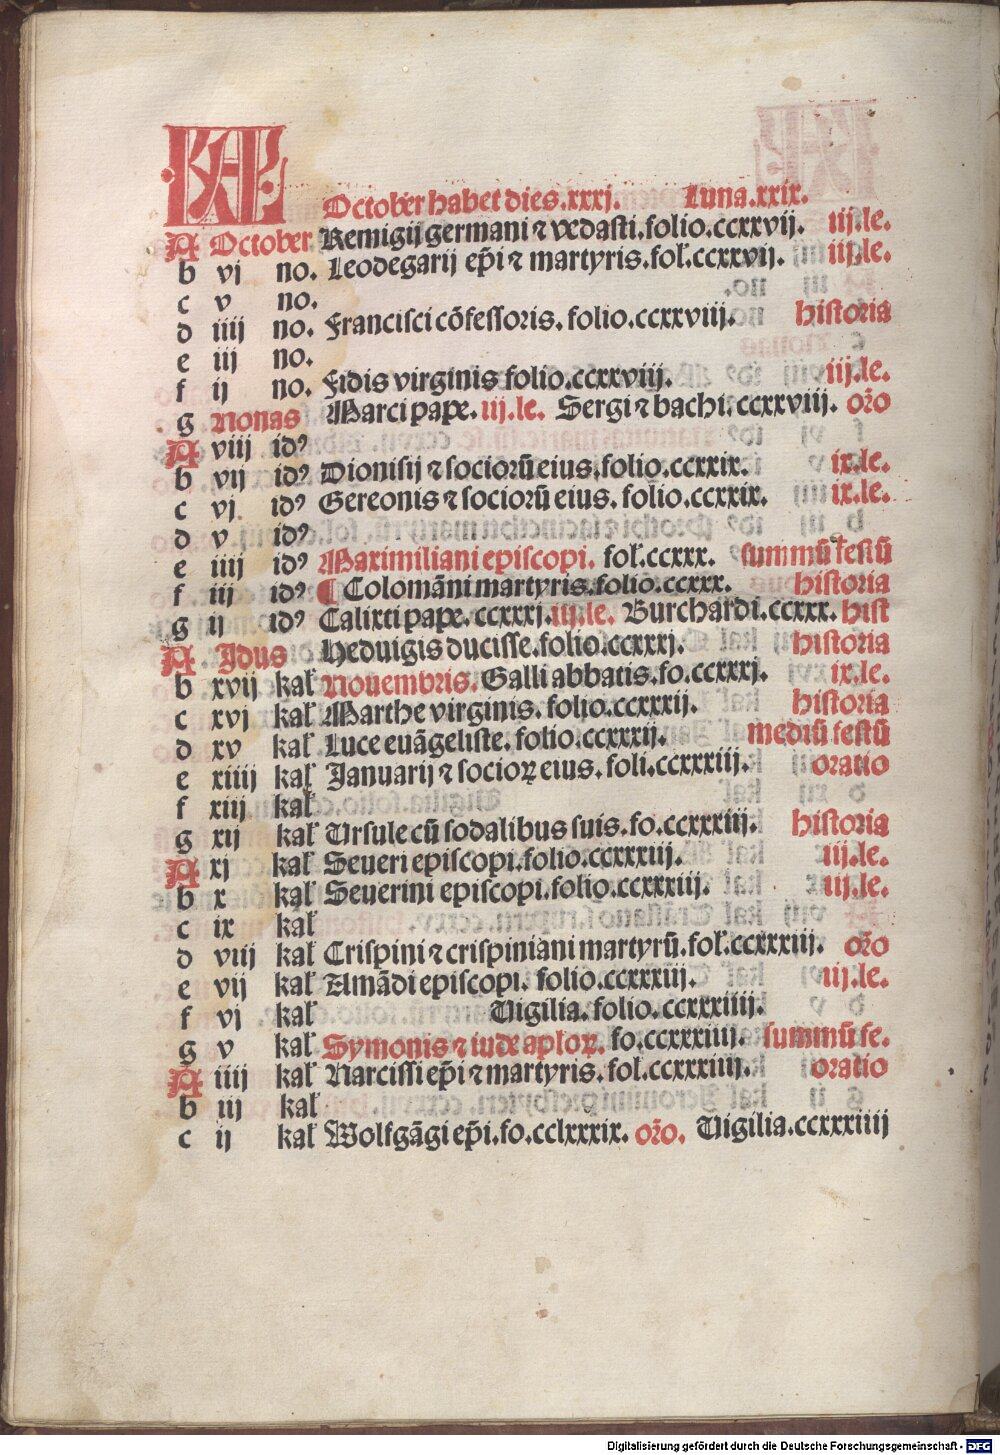 KAL
October habet dies.xxxj. Luna.xxix.
A October Remigij germani ⁊ vedasti.folio.ccxxvij. iij.le.
b vj no. Leodegarij ep̄i ⁊ martyris.fol̕.ccxxvij. iij.le.
c v no.
d iiij no. Francisci cōfessoris. folio.ccxxviij. historia
e iij no.
f ij no. Fidis virginis folio.ccxxviij. iij.le.
g Nonas Marci pape. iij.le. Sergi ⁊ bachi.ccxxviij. orō
A viij idꝰ
b vij idꝰ Dionisij ⁊ sociorū eius.folio.ccxxix. ix.le.
c vj idꝰ Gereonis ⁊ sociorū eius. folio.ccxxix. ix.le.
d v idꝰ
e iiij idꝰ Maximiliani episcopi. fol̕.ccxxx. summū festū
f iij idꝰ ¶ Colomāni martyris.folio.ccxxx. historia
g ij idꝰ Calixti pape. ccxxxj.iij.le. Burchardi.ccxxx. hist
A Idus Heduigis ducisse.folio.ccxxxj. historia
b xvij kal̕ Nouembris. Galli abbatis.fo.ccxxxj. ix.le.
c xvj kal̕ Marthe virginis. folio.ccxxxij. historia
d xv kal̕ Luce euāgeliste. folio.ccxxxij. mediū festū
e xiiij kal̕ Januarij ⁊ socioꝝ eius. foli.ccxxxiij. oratio
f xiij kal̕
g xij kal̕ Ursule cū sodalibus suis. fo.ccxxxiij. historia
A xj kal̕ Seueri episcopi.folio.ccxxxiij. iij.le.
b x kal̕ Seuerini episcopi.folio.ccxxxiij. iij.le.
c ix kal̕
d viij kal̕ Crispini ⁊ crispiniani martyrū.fol̕.ccxxxiij. orō
e vij kal̕ Amādi episcopi. folio.ccxxxiij. iij.le.
f vj kal̕ Uigilia. folio.ccxxxiiij.
g v kal̕ Symonis ⁊ iude aploꝝ. fo.ccxxxiiij. summū fe.
A iiij kal̕ Narcissi ep̄i ⁊ martyris. fol̕.ccxxxiiij. oratio
b iij kal̕
c ij kal̕ Wolfgāgi ep̄i.fo.cclxxxix. orō. Uigilia.ccxxxiiij
Digitalisierung gefördert durch die Deutsche Forschungsgemeinschaft - DFG